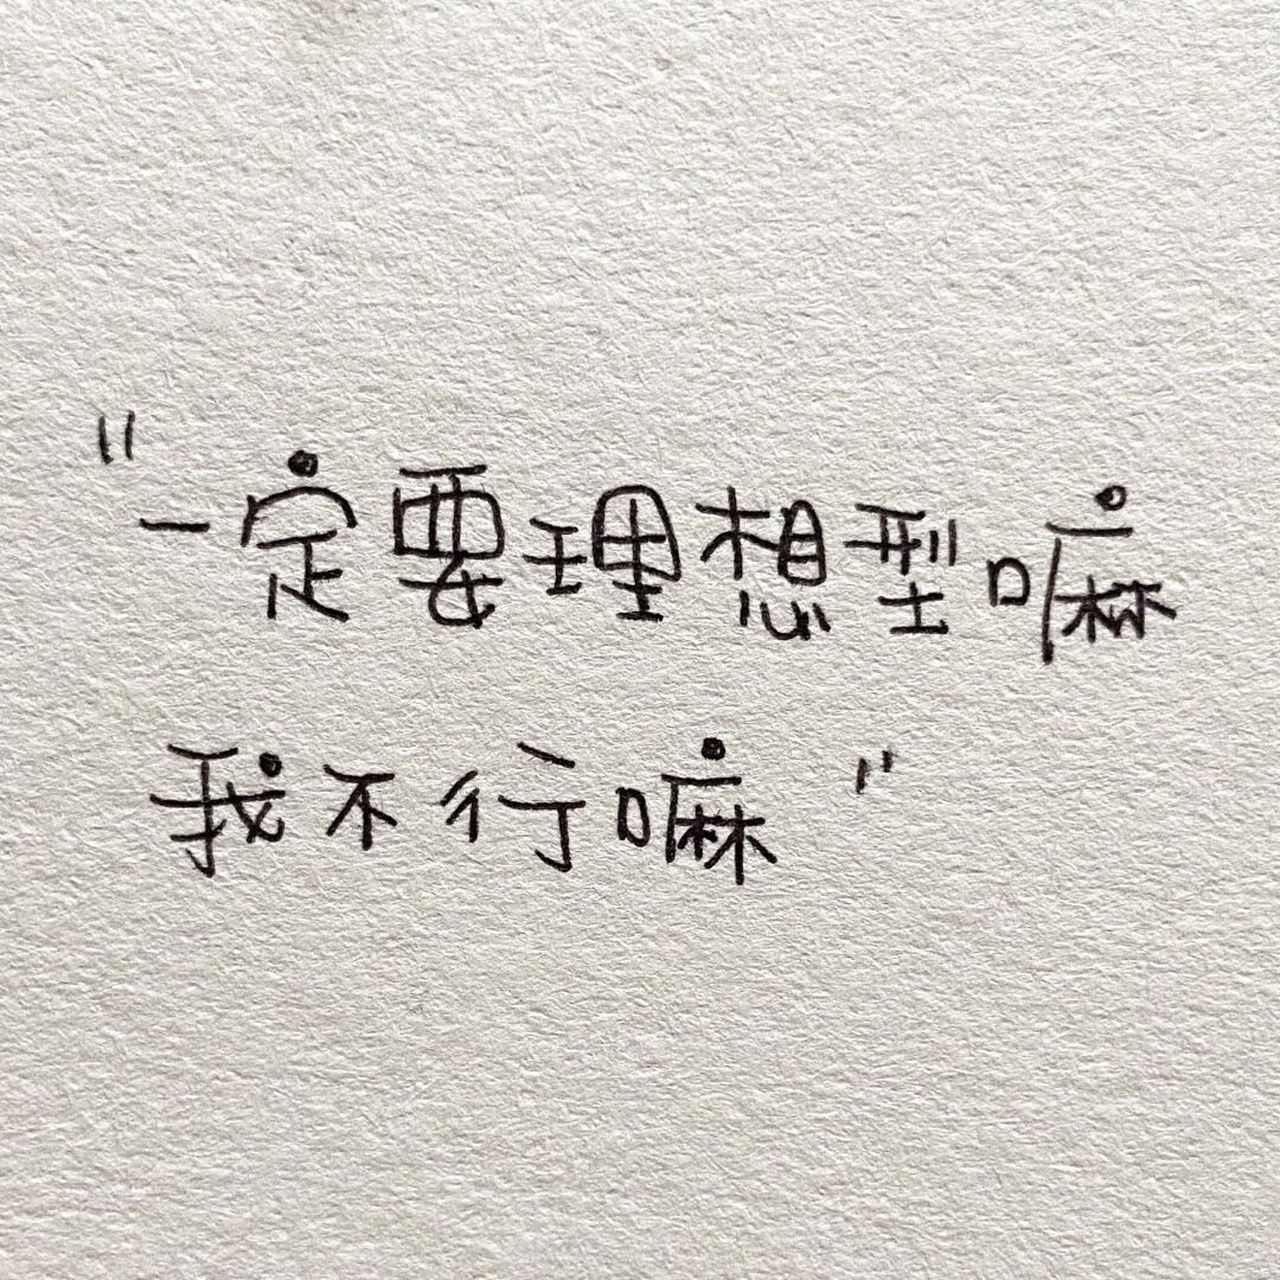 "一定要理想型嘛
我不行嘛"